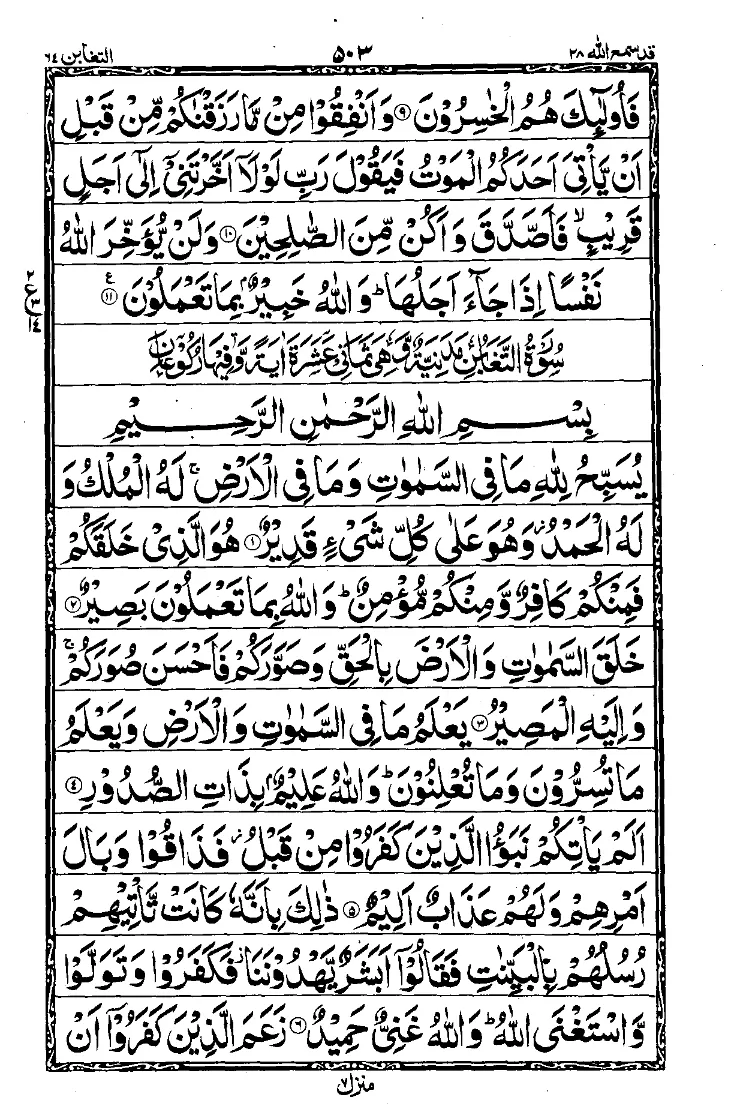 قد سمع الله ٢٨ ٥٠٣ التغابن ٦٤
فَاُولٰٓئِكَ هُمُ الْخٰسِرُوْنَ ﴿٩﴾ وَاَنْفِقُوْا مِنْ مَّا رَزَقْنٰكُمْ مِّنْ قَبْلِ
اَنْ يَّاْتِىَ اَحَدَكُمُ الْمَوْتُ فَيَقُوْلَ رَبِّ لَوْلَاۤ اَخَّرْتَنِىْۤ اِلٰٓى اَجَلٍ
قَرِيْبٍ ۙ فَاَصَّدَّقَ وَاَكُنْ مِّنَ الصّٰلِحِيْنَ ﴿١٠﴾ وَلَنْ يُّؤَخِّرَ اللّٰهُ
نَفْسًا اِذَا جَآءَ اَجَلُهَا ؕ وَاللّٰهُ خَبِيْرٌۢ بِمَا تَعْمَلُوْنَ ﴿١١﴾ ع
٢
ع ٣
١٤
سُوْرَةُ التَّغَابُنِ مَدَنِيَّةٌ وَّهِىَ ثَمَانِىْ عَشَرَةَ اٰيَةً وَّفِيْهَا رُكُوْعَانِ
بِسْمِ اللّٰهِ الرَّحْمٰنِ الرَّحِيْمِ
يُسَبِّحُ لِلّٰهِ مَا فِى السَّمٰوٰتِ وَمَا فِى الْاَرْضِ ۚ لَهُ الْمُلْكُ وَ
لَهُ الْحَمْدُ ؗ وَهُوَ عَلٰى كُلِّ شَىْءٍ قَدِيْرٌ ﴿١﴾ هُوَ الَّذِىْ خَلَقَكُمْ
فَمِنْكُمْ كَافِرٌ وَّمِنْكُمْ مُّؤْمِنٌ ؕ وَاللّٰهُ بِمَا تَعْمَلُوْنَ بَصِيْرٌ ﴿٢﴾
خَلَقَ السَّمٰوٰتِ وَالْاَرْضَ بِالْحَقِّ وَصَوَّرَكُمْ فَاَحْسَنَ صُوَرَكُمْ ۚ
وَاِلَيْهِ الْمَصِيْرُ ﴿٣﴾ يَعْلَمُ مَا فِى السَّمٰوٰتِ وَالْاَرْضِ وَيَعْلَمُ
مَا تُسِرُّوْنَ وَمَا تُعْلِنُوْنَ ؕ وَاللّٰهُ عَلِيْمٌۢ بِذَاتِ الصُّدُوْرِ ﴿٤﴾
اَلَمْ يَاْتِكُمْ نَبَؤُا الَّذِيْنَ كَفَرُوْا مِنْ قَبْلُ ؗ فَذَاقُوْا وَبَالَ
اَمْرِهِمْ وَلَهُمْ عَذَابٌ اَلِيْمٌ ﴿٥﴾ ذٰلِكَ بِاَنَّهٗ كَانَتْ تَّاْتِيْهِمْ
رُسُلُهُمْ بِالْبَيِّنٰتِ فَقَالُوْۤا اَبَشَرٌ يَّهْدُوْنَنَا ؗ فَكَفَرُوْا وَتَوَلَّوْا
وَّاسْتَغْنَى اللّٰهُ ؕ وَاللّٰهُ غَنِىٌّ حَمِيْدٌ ﴿٦﴾ زَعَمَ الَّذِيْنَ كَفَرُوْۤا اَنْ
منزل ٧